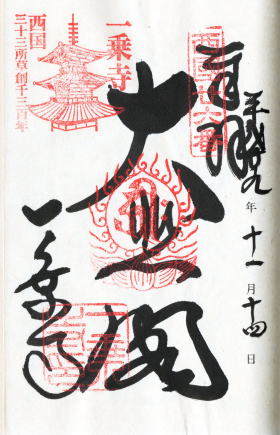 平成廿九年十一月十四日
奉拝
西国廿六番
大悲閣
一乗寺
一乗寺
西国
三十三所草創千三百年